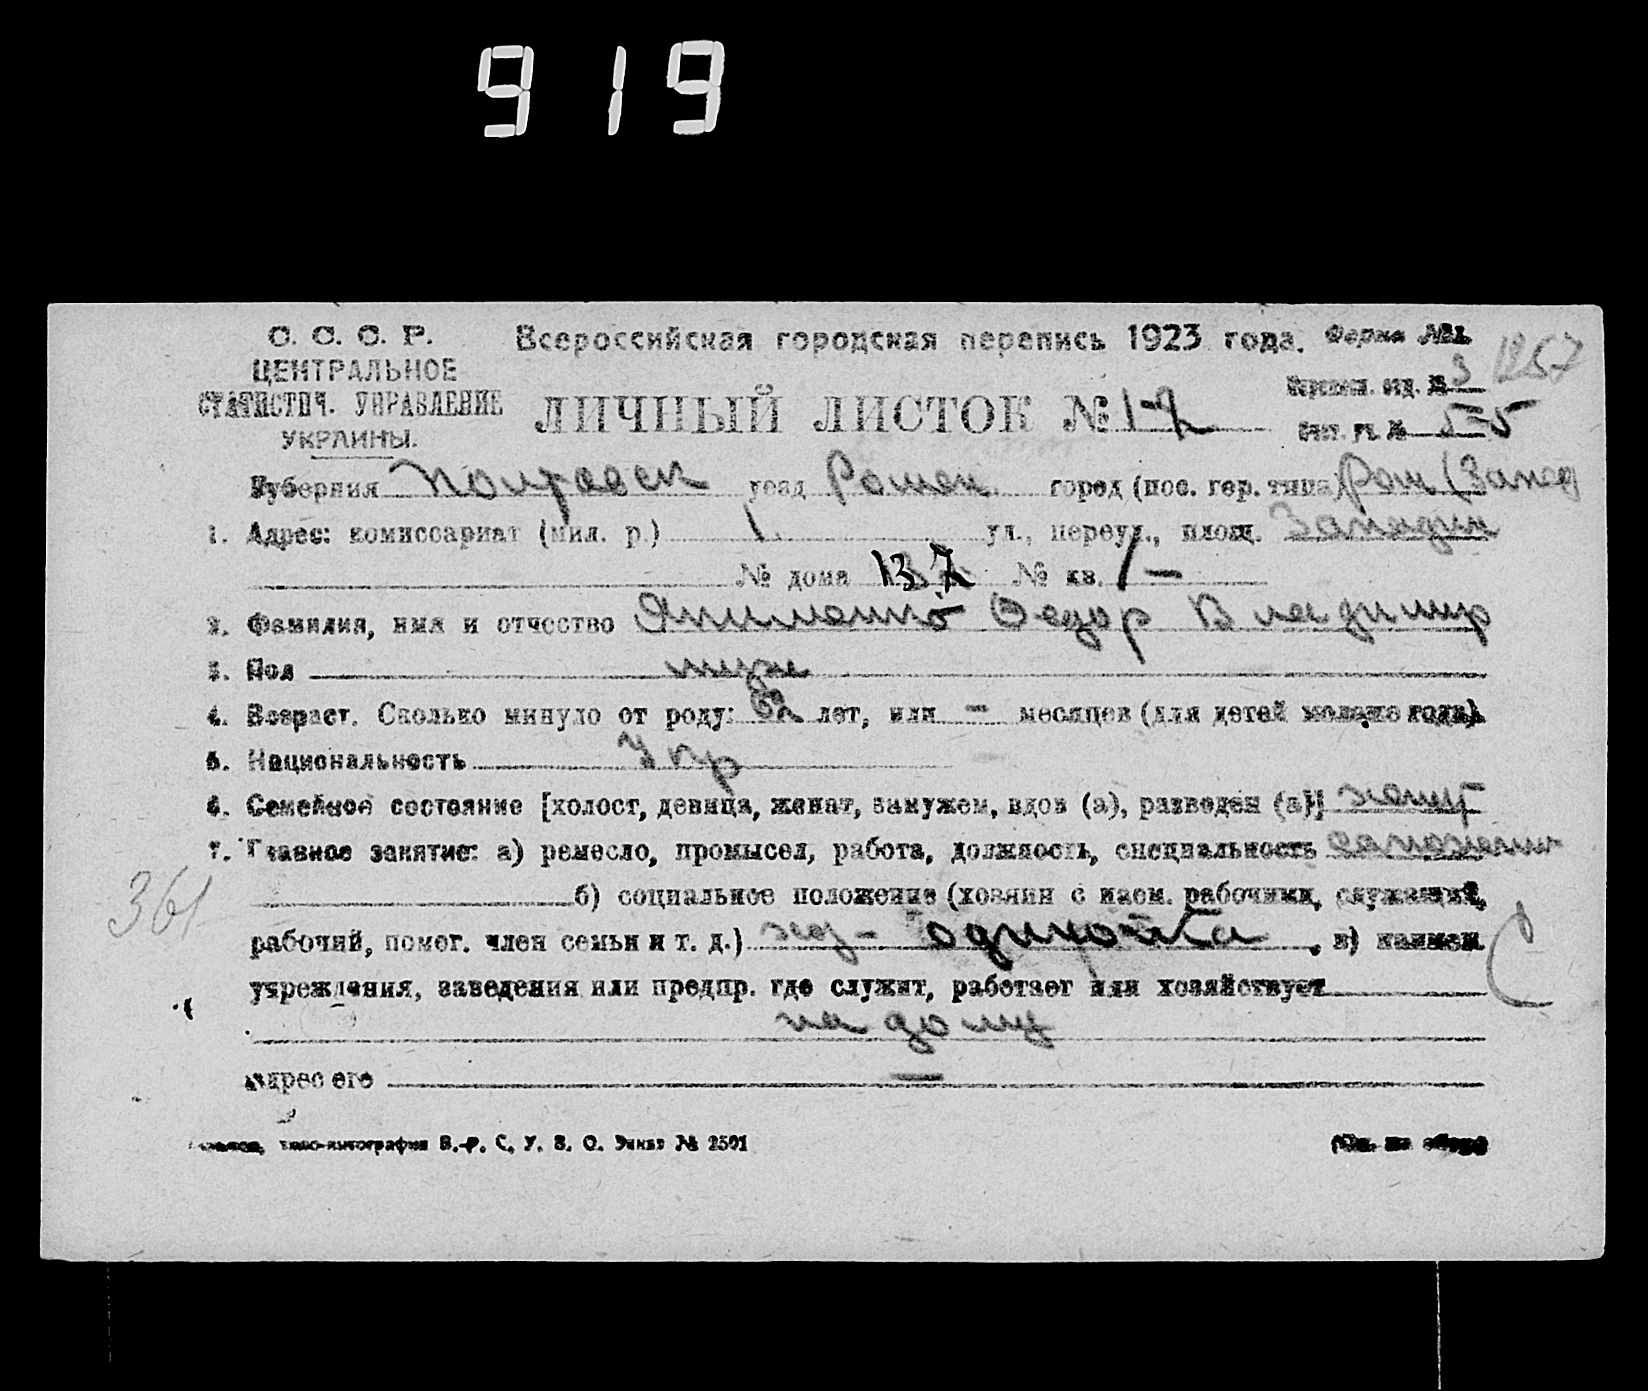 919
С. С. С. Р. Всероссийская городская перепись 1923 года. Форма №1.
ЦЕНТРАЛЬНОЕ 1267
СТАТИСТИЧ. УПРАВЛЕНИЕ № 3
УКРАИНЫ. ЛИЧНЫЙ ЛИСТОК № 1-2 Счет. уч. № 5-5
Губерния Полтавск уезд Ромен город (пос. гор. типа) Ром (Запад
1. Адрес: комиссариат (мил. р.) 1. ул., переул., площ.
№ дома 137 № кв. 1 –
2. Фамилия, имя и отчество Федор Владимир
3. Пол муж
4. Возраст. Сколько минуло от роду: 62 лет, или – месяцев (для детей моложе года).
5. Национальность Укр
6. Семейное состояние [холост, девица, женат, замужем, вдов (а), разведен (а)] женат
7. Главное занятие: а) ремесло, промысел, работа, должность, специальность сапожник
361 б) социальное положение (хозяин с наем. рабочими, служащий,
рабочий, помог. член семьи и т. д.) одиночка, в) наимен.
учреждения, заведения или предпр. где служит, работает или хозяйствует
на дому
Адрес его —
типо-литография В.-Р. С. У. В. О. Заказ № 2501 (См. на обор.)